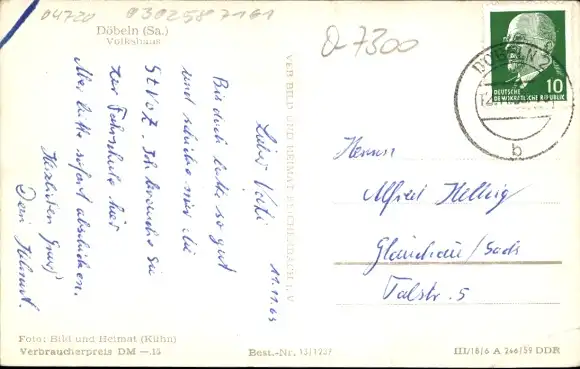 04720
0302587161
Döbeln (Sa.)
Volkshaus
D-7300
DÖBELN 2
b
10
DEUTSCHE
DEMOKRATISCHE REPUBLIK
VEB BILD UND HEIMAT REICHENBACH i. V.
11.11.63
Lieber Vati
Bis doch bitte so gut
und schicke mir die
StVoZ. Ich brauche sie
zur Fahrschule hier
Mir bitte sofort abschicken.
Herzlichen Gruß
Dein Helmut.
Herrn
Alfred Hellwig
Glauchau/Sachs
Talstr. 5
Foto: Bild und Heimat (Kühn)
Verbraucherpreis DM —.15
Best.-Nr. 13/1237
III/18/6 A 266/59 DDR